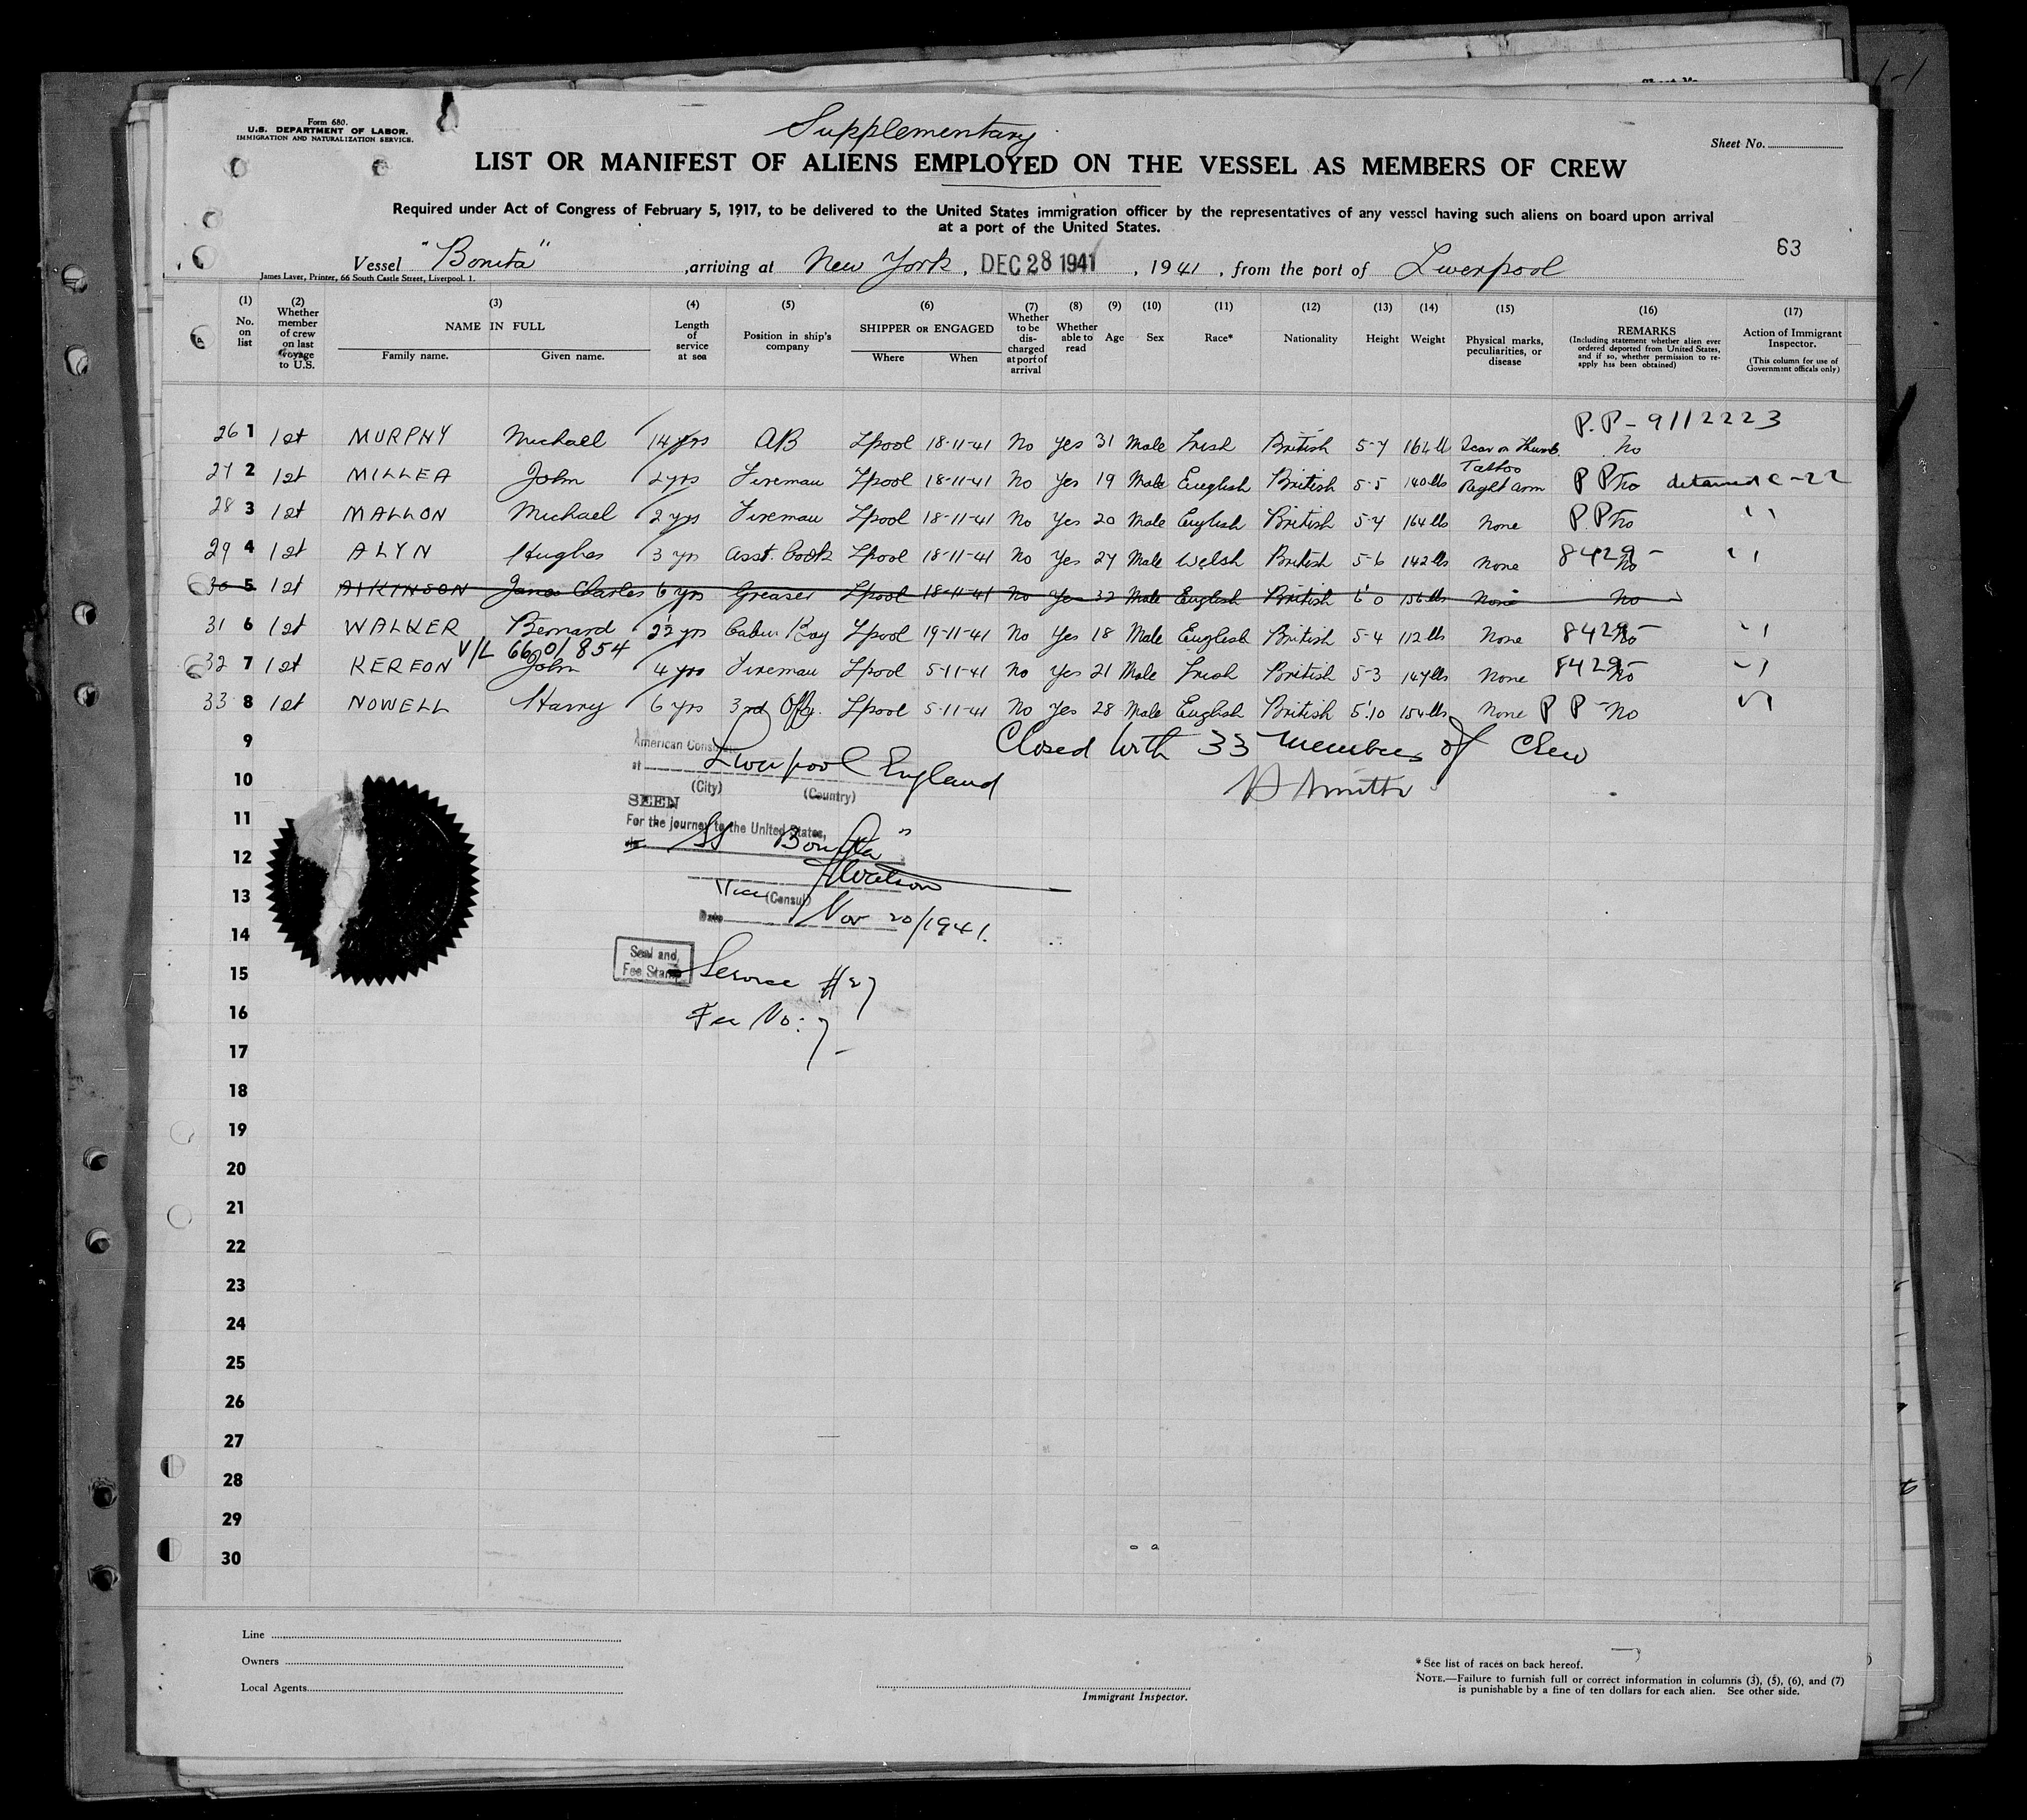 Form 680.
U.S. DEPARTMENT OF LABOR.
IMMIGRATION AND NATURALIZATION SERVICE.
Supplementary
Sheet No.
LIST OR MANIFEST OF ALIENS EMPLOYED ON THE VESSEL AS MEMBERS OF CREW
Required under Act of Congress of February 5, 1917, to be delivered to the United States immigration officer by the representatives of any vessel having such aliens on board upon arrival
at a port of the United States.
63
Vessel "Bonita" , arriving at New York, DEC 28 1941 , 1941 , from the port of Liverpool
James Laver, Printer, 66 South Castle Street, Liverpool. 1.
(1) No. on list (2) Whether member of crew on last voyage to U.S. (3) NAME IN FULL Family name. Given name. (4) Length of service at sea (5) Position in ship's company (6) SHIPPER OR ENGAGED Where When (7) Whether to be discharged at port of arrival (8) Whether able to read (9) Age (10) Sex (11) Race* (12) Nationality (13) Height (14) Weight (15) Physical marks, peculiarities, or disease (16) REMARKS (Including statement whether alien ever ordered deported from United States, and if so, whether permission to re-apply has been obtained) (17) Action of Immigrant Inspector. (This column for use of Government officials only)
P.P - 9112223
26 1 1st MURPHY Michael 14 yrs AB Lpool 18-11-41 No Yes 31 Male Irish British 5-7 164 lb Scar on thumb No
27 2 1st MILLEA John 2 yrs Fireman Lpool 18-11-41 No Yes 19 Male English British 5-5 140 lbs Tattoo Right arm P P No detained C-22
28 3 1st MALLON Michael 2 yrs Fireman Lpool 18-11-41 No Yes 20 Male English British 5-7 164 lbs None P.P No "
29 4 1st ALYN Hughes 3 yrs Asst. Cook Lpool 18-11-41 No Yes 27 Male Welsh British 5-6 142 lbs None 8429- No "
30 5 1st ATKINSON James Charles 6 yrs Greaser Lpool 18-11-41 No Yes 32 Male English British 6'0 156 lbs None No
31 6 1st WALKER Bernard 2½ yrs Cabin Boy Lpool 19-11-41 No Yes 18 Male English British 5-4 112 lbs None 8429- No "
V/L 6601854
32 7 1st KEREON John 4 yrs Fireman Lpool 5-11-41 No Yes 21 Male Irish British 5-3 147 lbs None 8429- No "
33 8 1st NOWELL Harry 6 yrs 3rd Offr. Lpool 5-11-41 No Yes 28 Male English British 5'10 154 lbs None P P - No "
9 Closed with 33 members of Crew
American Consulate
at Liverpool England
(City) (Country)
10 H Smith
SEEN
11 For the journey to the United States,
12 SS "Bonita"
Watson
13 Vice (Consul)
Date Nov 20/1941.
14
Seal and
Fee Stamp
15 Service #27
16 Fee No: 7-
17
18
19
20
21
22
23
24
25
26
27
28
29
30
Line
Owners
Local Agents
Immigrant Inspector.
* See list of races on back hereof.
NOTE.—Failure to furnish full or correct information in columns (3), (5), (6), and (7)
is punishable by a fine of ten dollars for each alien. See other side.